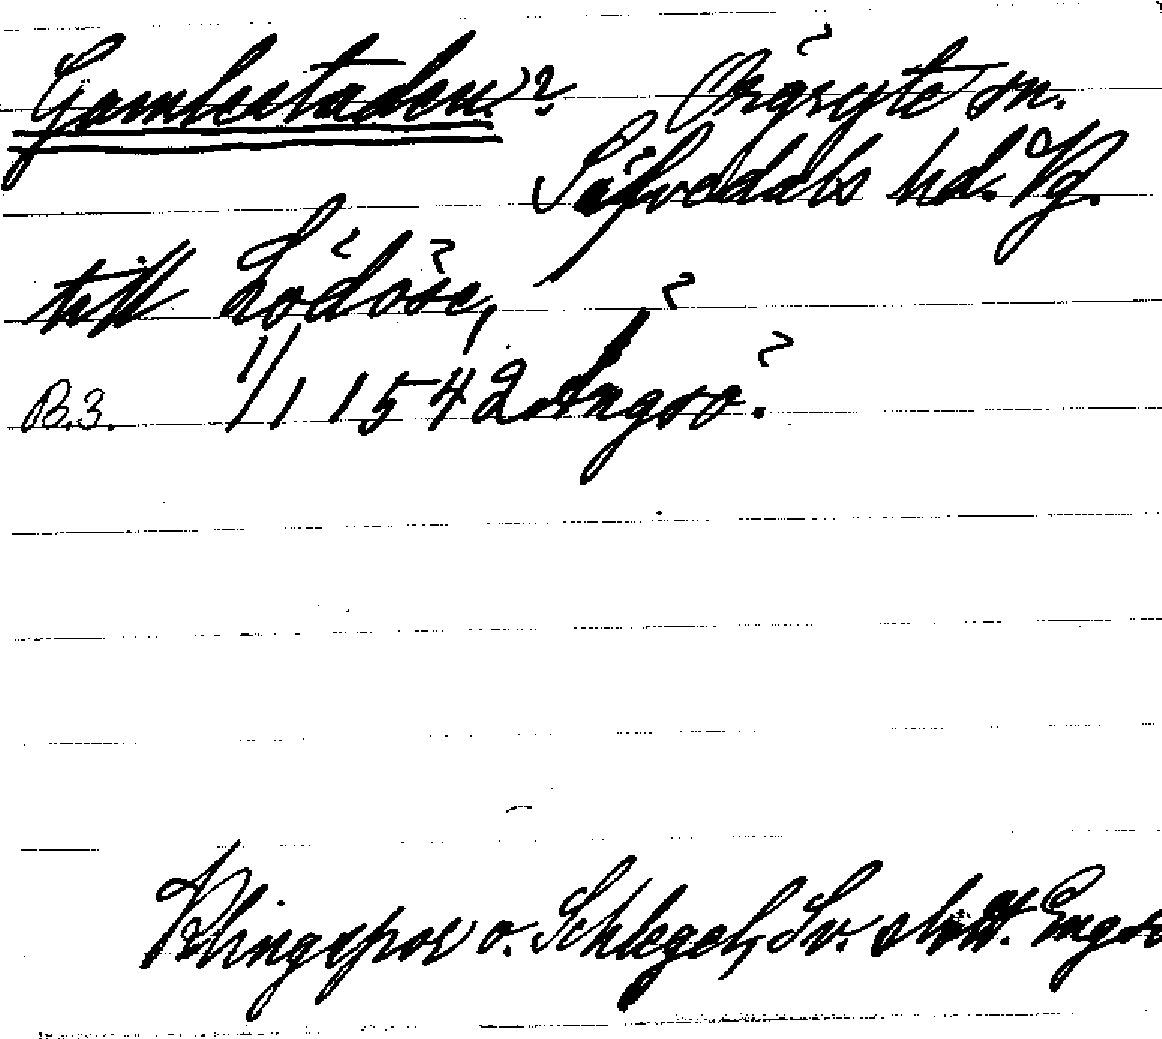 Gamlestaden? Örgryte sn.
Säfvedals hd. Vg.
till Lödöse,
B.3. 1/1 1542 Ängsö.
Klingspor o. Schlegel, Sv. slott. Engsö